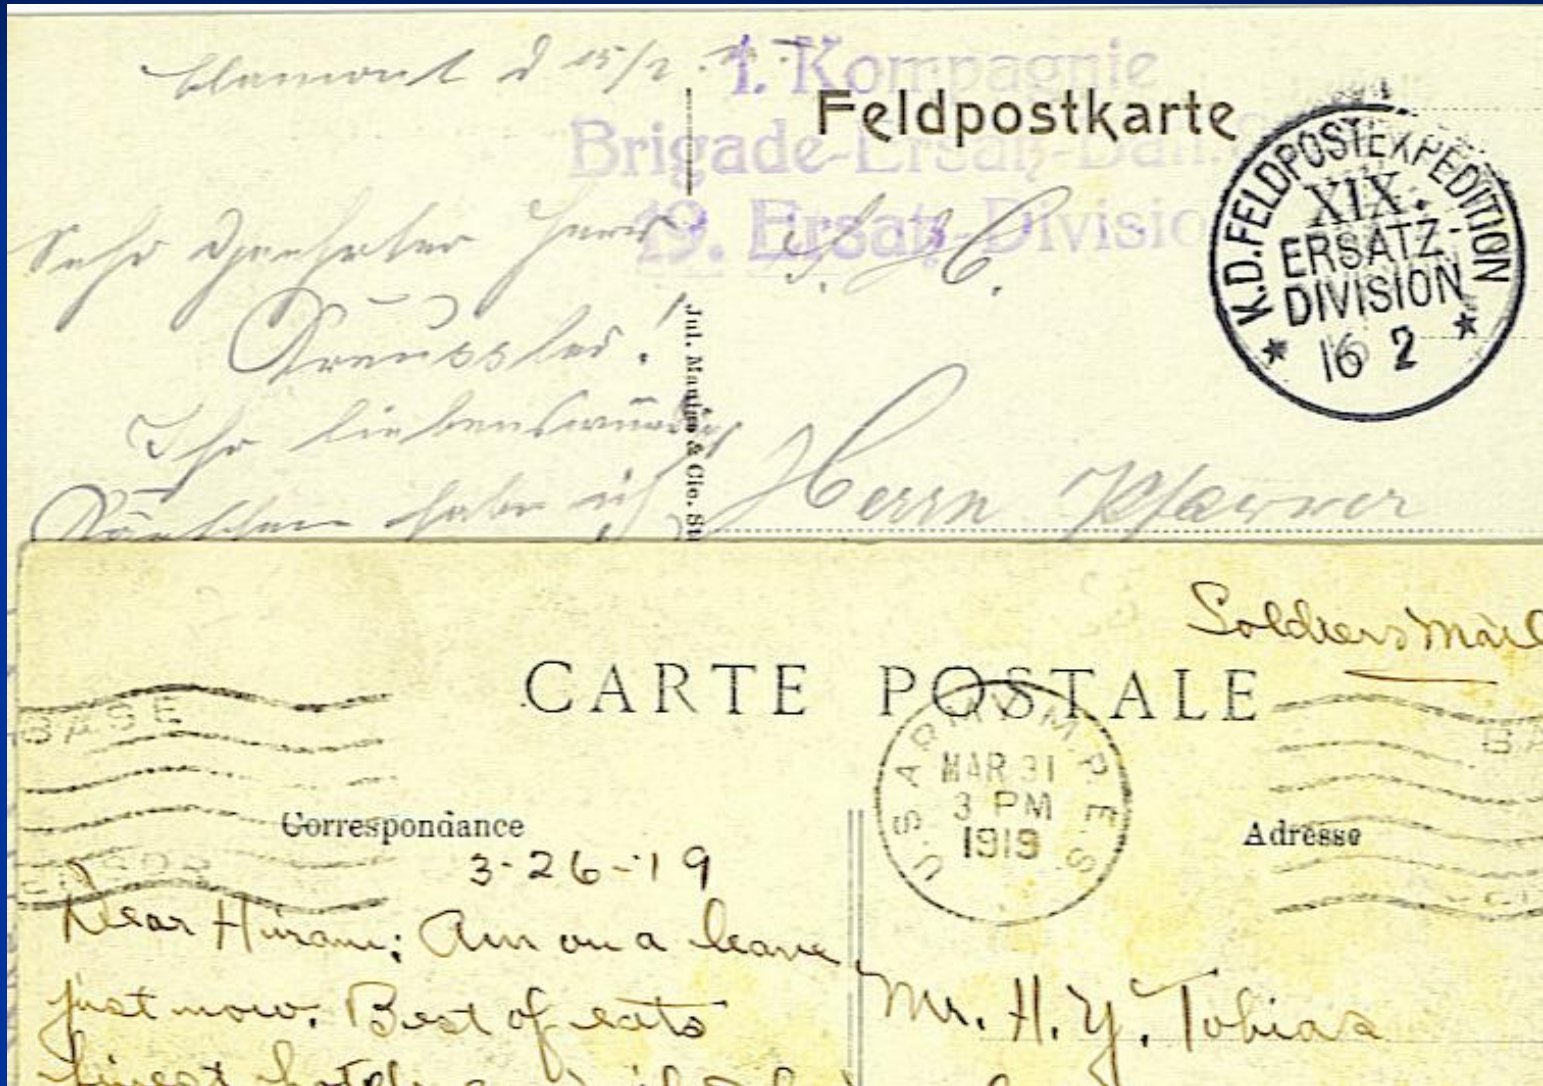 Blamont d 15/2
1. Kompagnie
Brigade-Ersatz-Batl.
19. Ersatz-Division
Feldpostkarte
K.D. FELDPOSTEXPEDITION
XIX.
ERSATZ-
DIVISION
* 16 2 *
Sehr Geehrter Herr
Ihr liebenswürdig
habe ich
Jul. Manias & Cie. St
Herrn Pfarrer
Soldiers Mail
CARTE POSTALE
BASE
U.S. ARMY M.P.E.S.
MAR 31
3 PM
1919
BA
Correspondance
Adresse
3-26-19
Dear Hiram: Am on a leave
just now. Best of eats
finest hotels
Mr. H. Y. Tobias